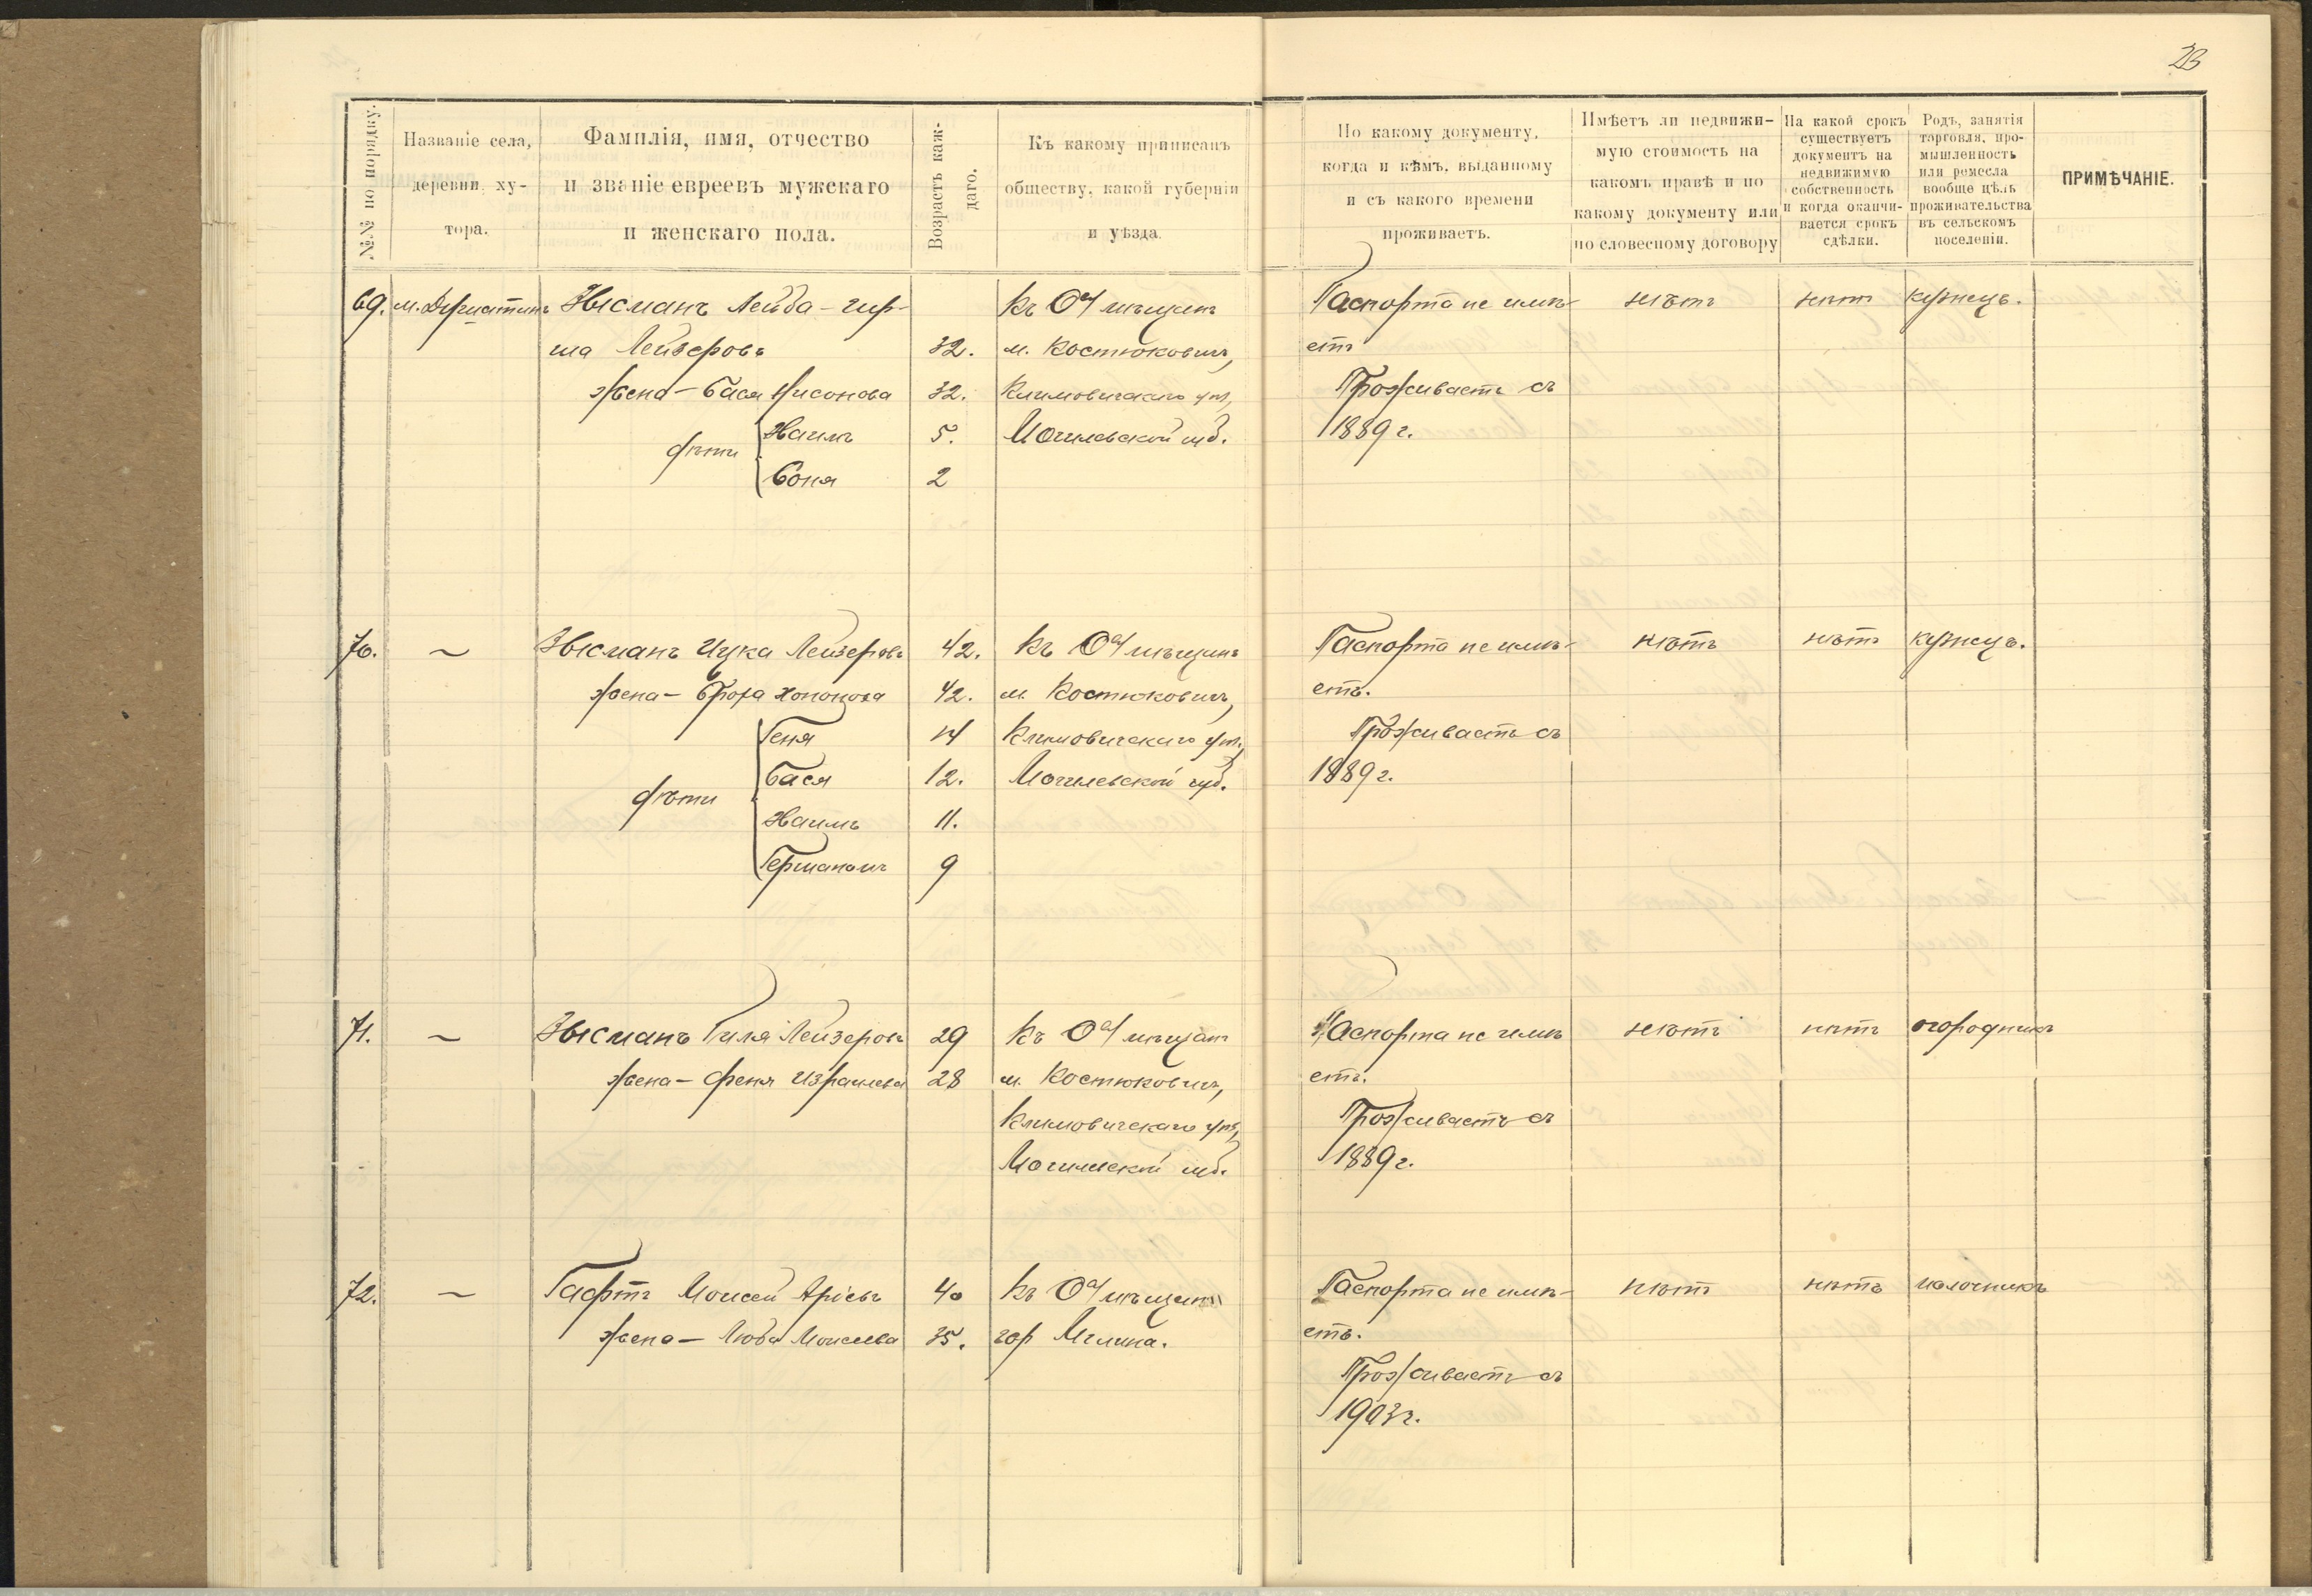 23
№№ по порядку.
Названіе села,
деревни, ху-
тора.
Фамилія, имя, отчество
и званіе евреевъ мужскаго
и женскаго пола.
Возрастъ каж-
даго.
Къ какому приписанъ
обществу, какой губерніи
и уѣзда.
По какому документу,
когда и кѣмъ, выданному
и съ какого времени
проживаетъ.
Имѣетъ ли недвижи-
мую стоимость на
какомъ правѣ и по
какому документу или
по словесному договору
На какой срокъ
существуетъ
документъ на
недвижимую
собственность
и когда оканчи-
вается срокъ
сдѣлки.
Родъ, занятія
торговля, про-
мышленность
или ремесла
вообще цѣль
проживательства
въ сельскомъ
поселеніи.
ПРИМѢЧАНІЕ.
69. м. Зысманъ Лейба-Гир- къ Оу мѣщанъ Паспорта не имѣ- нѣтъ нѣтъ кузнецъ.
ша Лейзеровъ 32. м. Костюковичъ, етъ
жена - Бася Нисонова 32. Климовичскаго у., Проживаетъ съ
Хаимъ 5. Могилевской губ. 1889 г.
дѣти
Соня 2
70. — Зысманъ Ицка Лейзеровъ 42. къ Оу мѣщанъ Паспорта не имѣ- нѣтъ нѣтъ кузнецъ.
жена - Броха Хононова 42. м. Костюковичъ, етъ.
Геня 14 Климовичскаго у., Проживаетъ съ
Бася 12. Могилевской губ. 1889 г.
дѣти
Хаимъ 11.
9
71. — Зысманъ Гиля Лейзеровъ 29 къ Оу мѣщанъ Паспорта не имѣ нѣтъ нѣтъ огородникъ
жена - Феня Израилева 28 м. Костюковичъ, етъ.
Климовичскаго у., Проживаетъ съ
Могилевской губ. 1889 г.
72. — Гафтъ Моисей Аріевъ 40 къ Оу мѣщанъ Паспорта не имѣ- нѣтъ нѣтъ молочникъ
жена - Люба Моисеева 35. гор Мглина. етъ.
Проживаетъ съ
1903 г.